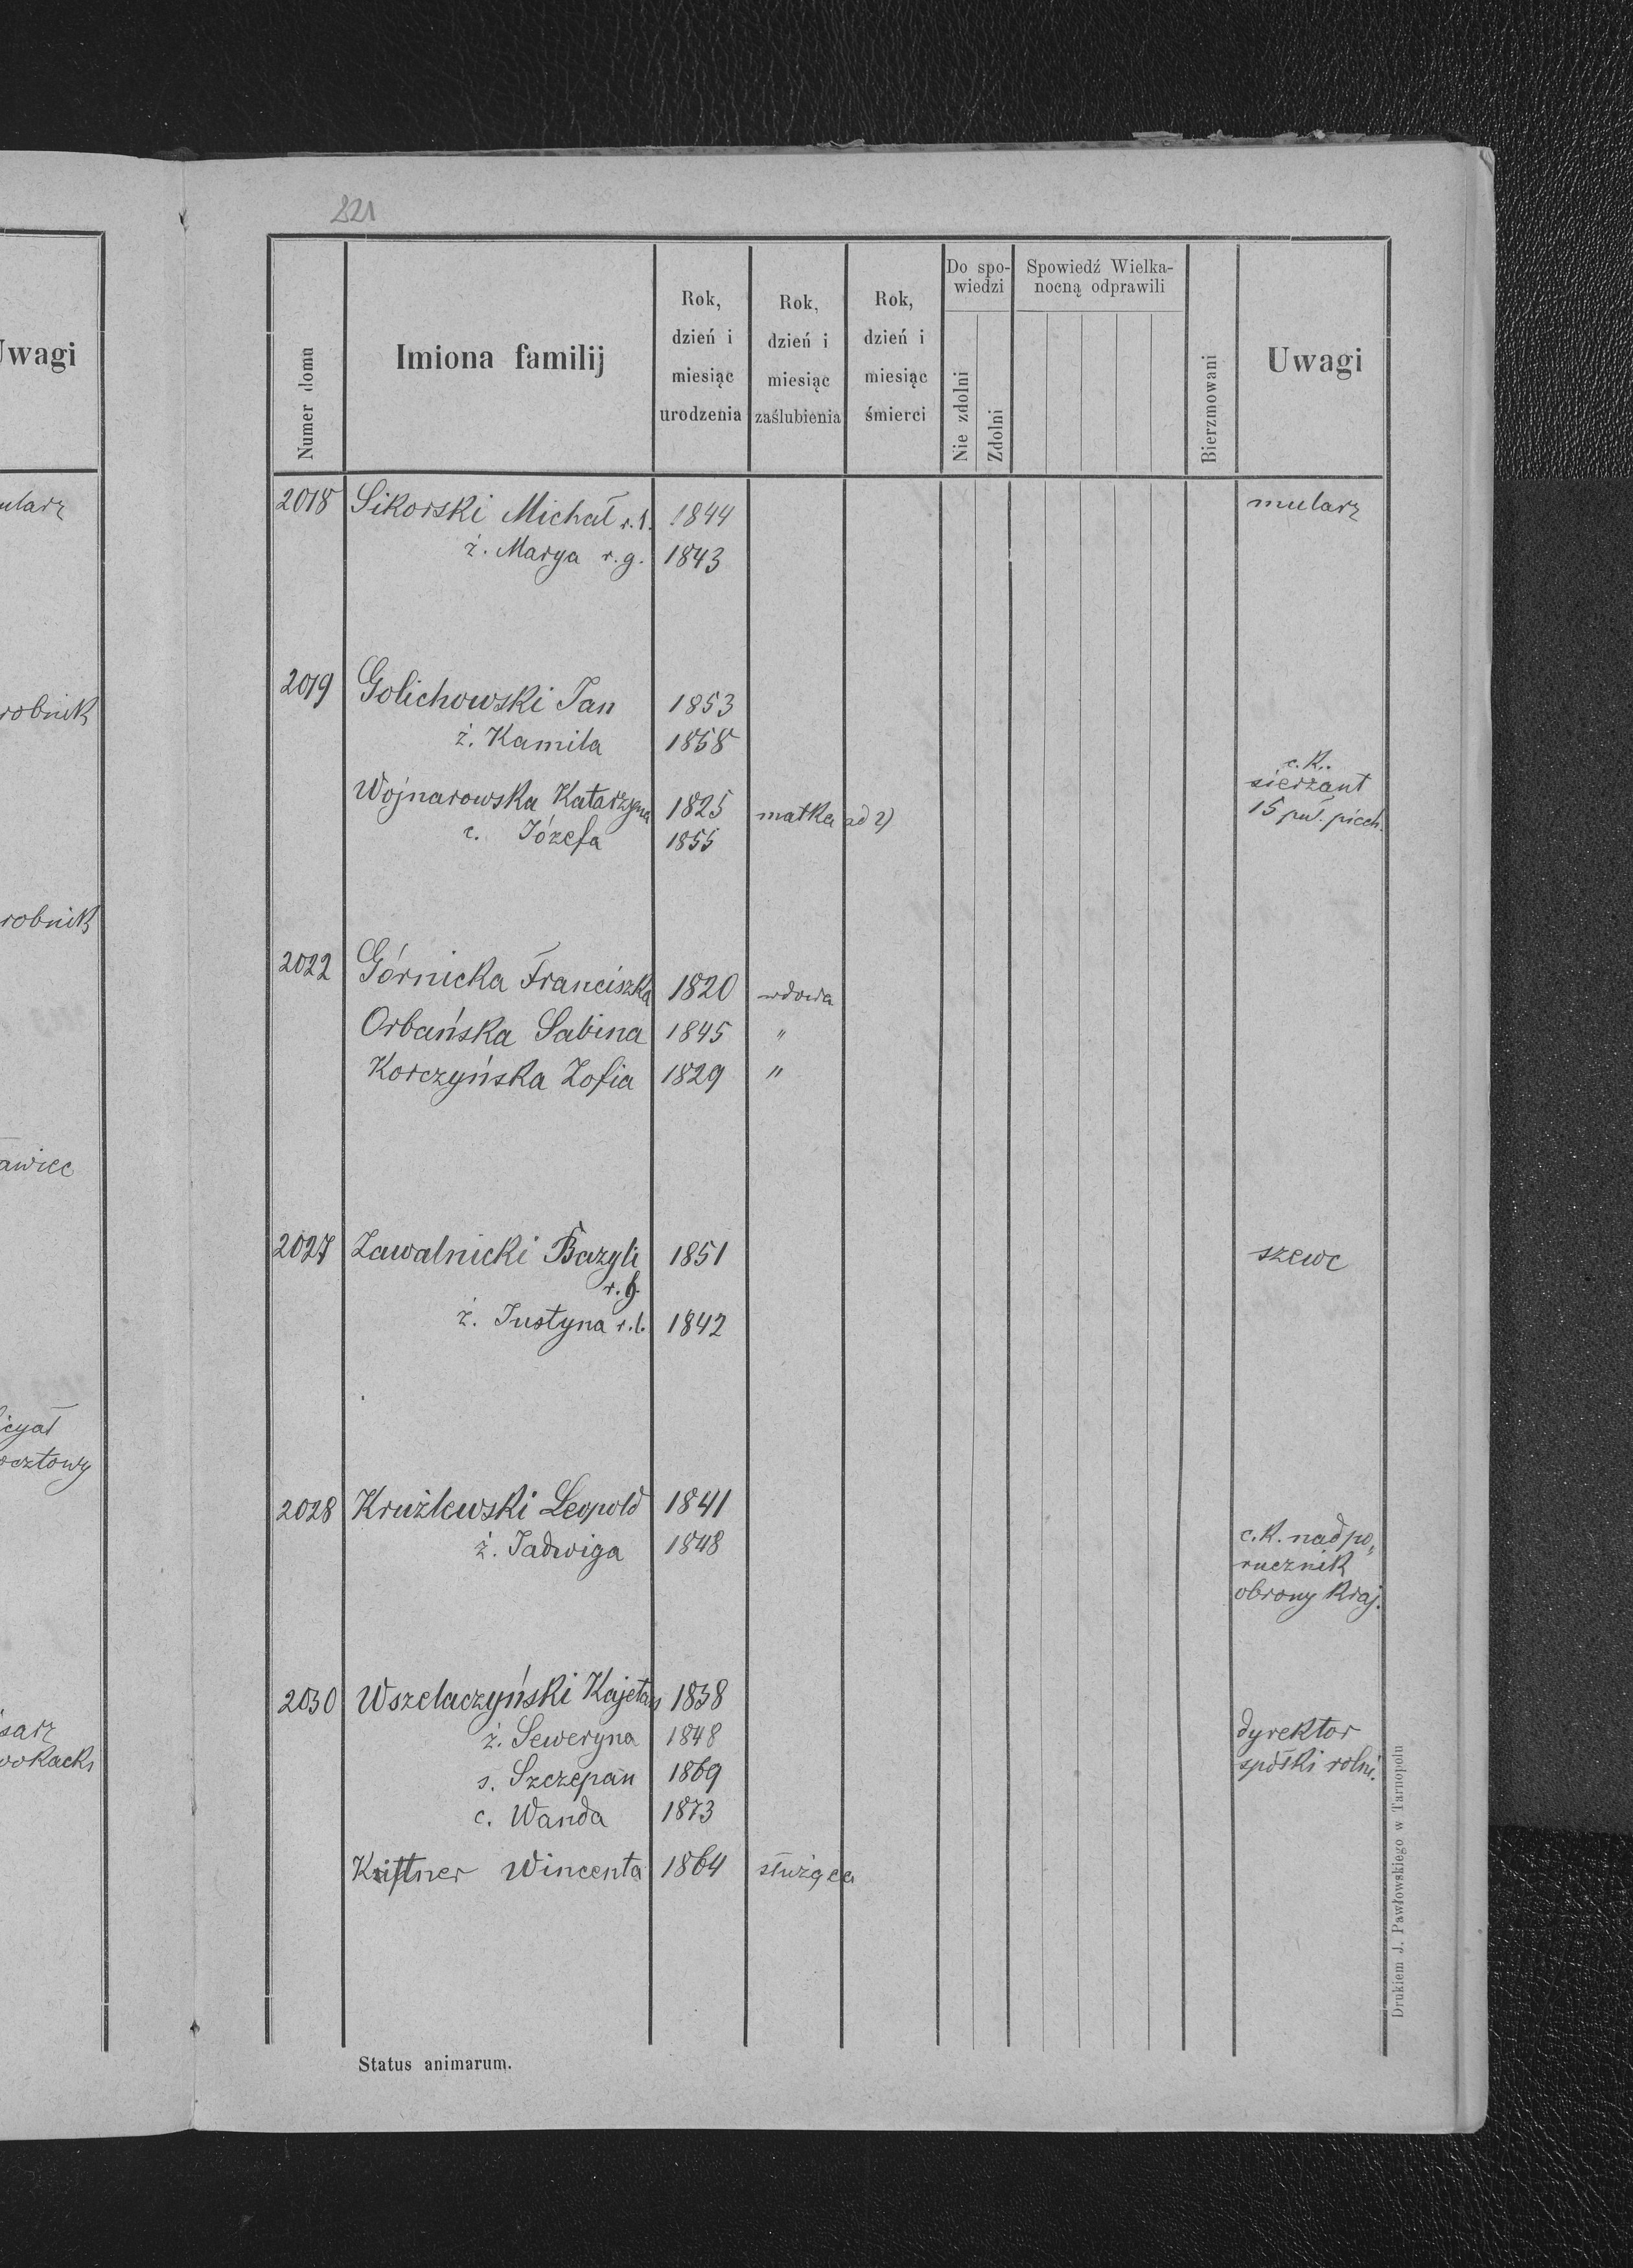 221
Uwagi
mularz
robnik
robnik
awiec
icyał
ocztowy
sarz
wokacki
Numer domu
Imiona familij
Rok, dzień i miesiąc urodzenia
Rok, dzień i miesiąc zaślubienia
Rok, dzień i miesiąc śmierci
Do spo-wiedzi
Nie zdolni
Zdolni
Spowiedź Wielka-nocną odprawili
Bierzmowani
Uwagi
2018 Sikorski Michał r.ł. 1844 mularz
ż. Marya r.g. 1843
2019 Golichowski Jan 1853
ż. Kamila 1858
c.k. sierżant
Wojnarowska Katarzyna 1825 matka ad 2) 15 puł. piech.
c. Józefa 1855
2022 Górnicka Franciszka 1820 wdowa
Orbańska Sabina 1845 "
Korczyńska Zofia 1829 "
2027 Zawalnicki Bazyli 1851 szewc
r.g.
ż. Justyna r.ł. 1842
2028 Krużlewski Leopold 1841
ż. Jadwiga 1848 c.k. nadpo„
rucznik
obrony kraj.
2030 Wszelaczyński Kajetan 1838
ż. Seweryna 1848 dyrektor
s. Szczepan 1869 spółki rolni.
c. Wanda 1873
Wincenta 1864 służąca
Status animarum.
Drukiem J. Pawłowskiego w Tarnopolu